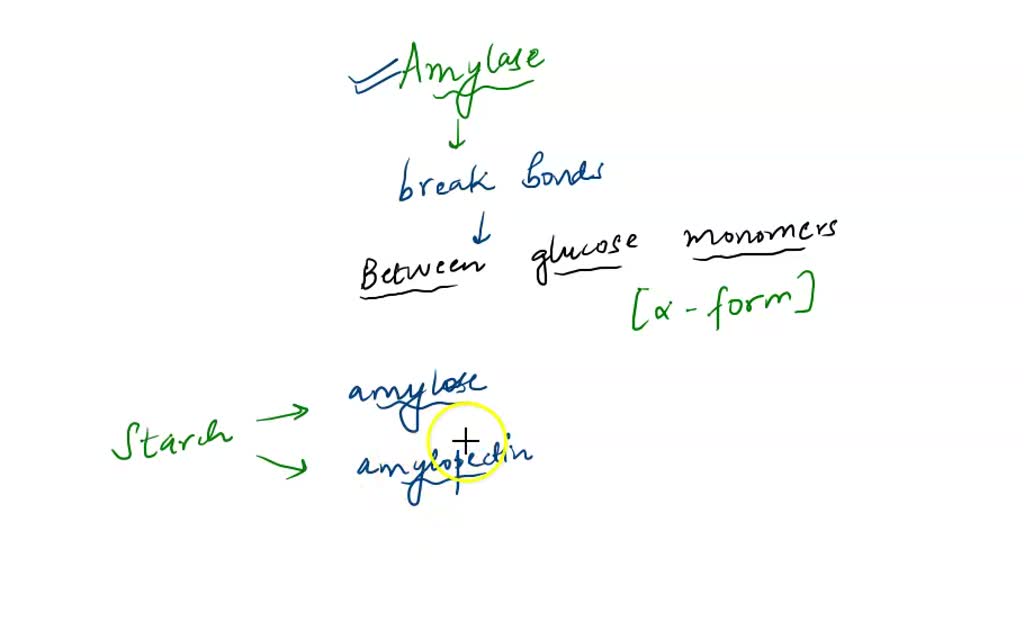 Amylase
break bonds
Between glucose monomers
[α-form]
Starch
amylose
amylopectin